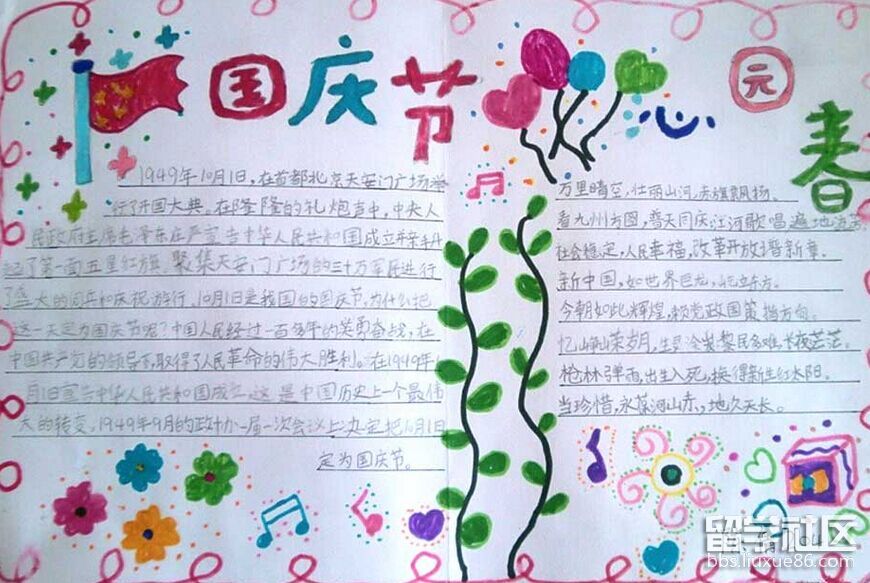 国庆节
1949年10月1日,在首都北京天安门广场举
行了开国大典。在隆隆的礼炮声中,中央人
民政府主席毛泽东庄严宣告中华人民共和国成立并亲手升
起了第一面五星红旗。聚集天安门广场的三十万军民进行
了盛大的阅兵和庆祝游行。10月1日是我国的国庆节,为什么把
这一天定为国庆节呢?中国人民经过一百多年的英勇奋战,在
中国共产党的领导下,取得了人民革命的伟大胜利。在1949年
月1日宣告中华人民共和国成立。这是中国历史上一个最伟
大的转变,1949年9月的政协一届一次会议上决定把10月1日
定为国庆节。
心园
春
万里晴空,壮丽山河,赤旗飘扬。
看九州方圆,普天同庆江河歌唱遍地
社会稳定,人民幸福,改革开放谱新章。
新中国,如世界巨龙,屹立东方。
今朝如此辉煌,赖党政国策指方向。
忆峥嵘岁月,生灵涂炭黎民多难,长夜茫茫。
枪林弹雨,出生入死,换得新生红太阳。
当珍惜,永葆河山赤,地久天长。
留学社区
bbs.liuxue86.com